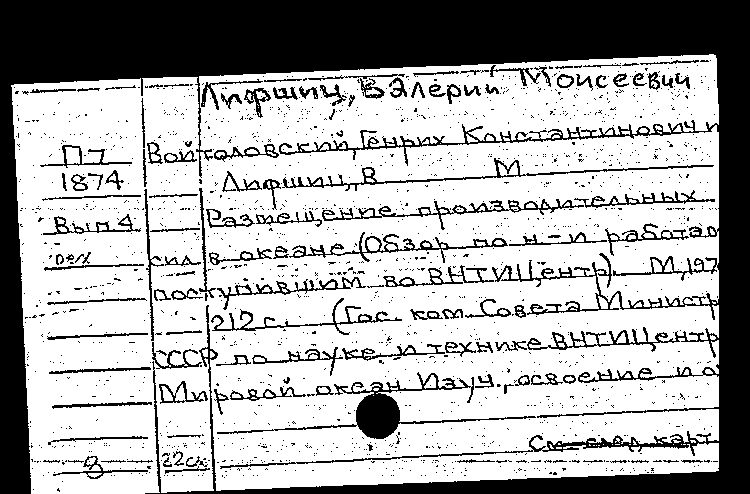 Лифшиц, Валерий Моисеевич
П7 Войтоловский, Генрих Константинович и
1874 Лифшиц, В М
Вып 4 Размещение производительных
сил в океане (Обзор по н-и работам
поступившим во ВНТИЦентр). М, 197
212 с. (Гос. ком. Совета Министр
СССР по науке и технике ВНТИЦентр
Мировой океан Изуч., освоение и о
См след карт
8 22сх